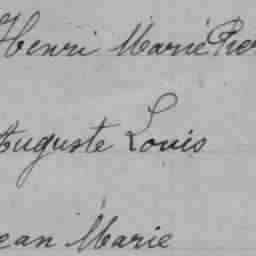 Henri Marie Pier
Auguste Louis
ean Marie